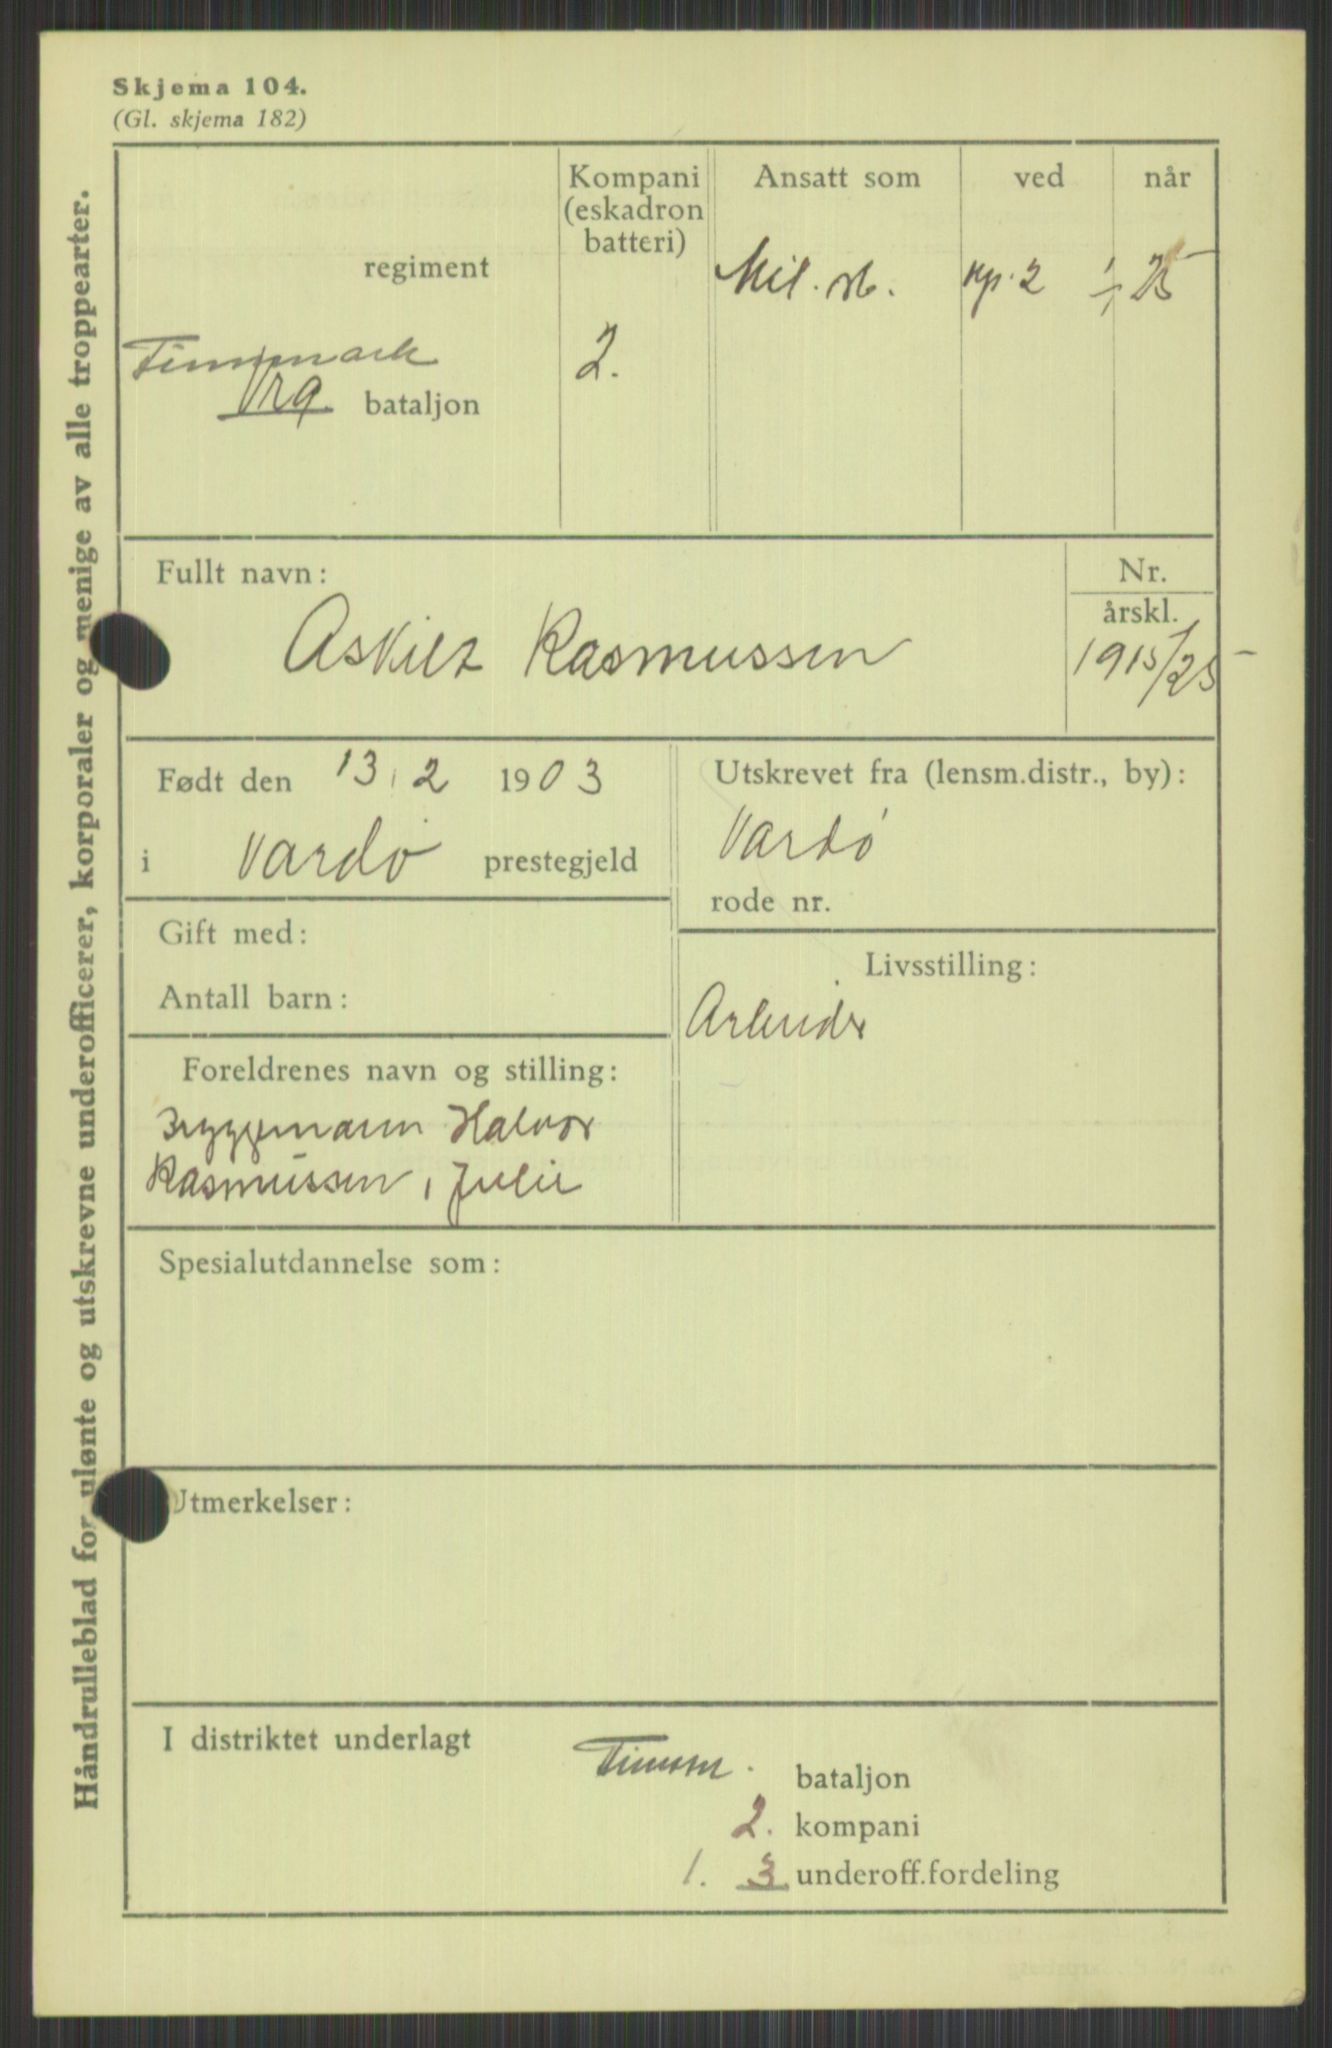 Skjema 104.
(Gl. skjema 182)
Håndrulleblad for ulønte og utskrevne underofficerer, korporaler og menige av alle troppearter.
regiment
Finnmark
bataljon
Kompani
(eskadron
batteri)
2.
Ansatt som
ved
når
Mil. st.
np. 2
1/1 25
Fullt navn:
Askild Rasmussen
Nr.
årskl.
1915/25
Født den 13.2 1903
i Vardø prestegjeld
Utskrevet fra (lensm.distr., by):
Vardø
rode nr.
Gift med:
Antall barn:
Livsstilling:
Arbeider
Foreldrenes navn og stilling:
Bryggemann Halvor
Rasmussen, Julie
Spesialutdannelse som:
Utmerkelser:
I distriktet underlagt
Finnm. bataljon
2. kompani
1. 3 underoff.fordeling